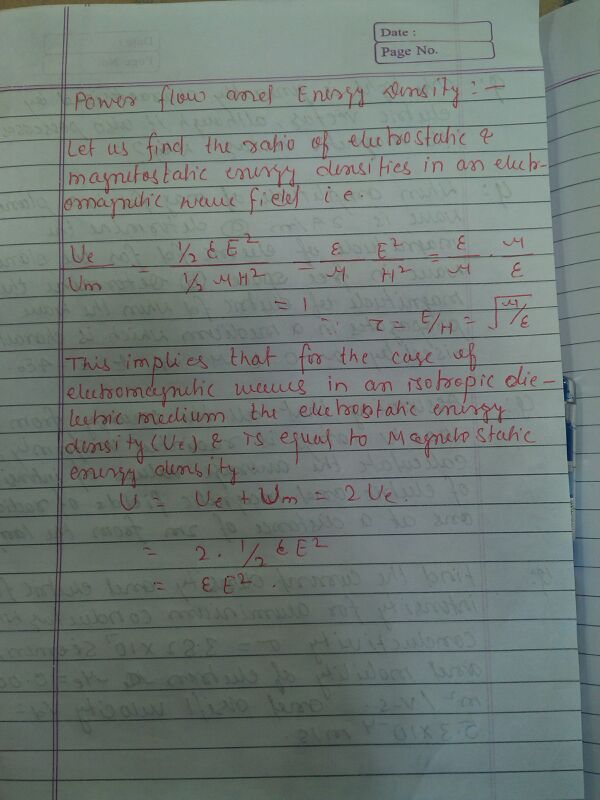 Date :
Page No.
Power flow and Energy Density : -
Let us find the ratio of eletrostatic &
magnetostatic energy densities in an electr-
omagnetic wave field i.e.
Ue/Um = ½ ε E²/½ μ H² = ε/μ E²/H² = ε/μ . μ/ε
= 1 ∵ z = E/H = √μ/ε
This implies that for the case of
electromagnetic waves in an isotropic die-
lectric medium the electrostatic energy
density (Ue) & is equal to Magnetostatic
energy density
U = Ue + Um = 2 Ue.
= 2 . 1/2 ε E²
= ε E².